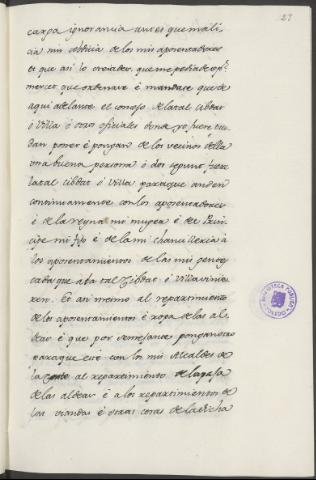 27
carga ignorancia antes que mali
cia nin cobdicia de los mis aposentadores
et que asi lo creia des, que me pedia de op.
merçet que ordenare é mandare que de
aqui adelante el conçejo de la tal cibdat
ó villa ó otros oficiales donde yo fuere pue
dan poner é pongan de los vecinos della
una buena persona ó dos segunt fuere
la tal cibdat ó villa para que anden
continuamente con los aposentadores
é de la reyna mi muger é del Prin
cipe mi fijo é de la mi chancilleria á
los aposentamientos de las mis gentes
cada que á la tal Cibdat ó villa vinie
ren. Et asi mesmo al repartimiento
de los aposentamientos é ropa de las al
deas é que por semejante pongan otros
para que esté con los mis Alcaldes de
la Corte al repartimiento de la paja
de las aldeas é á los repartimientos de
las viandas é otras cosas de la dicha
BIBLIOTECA